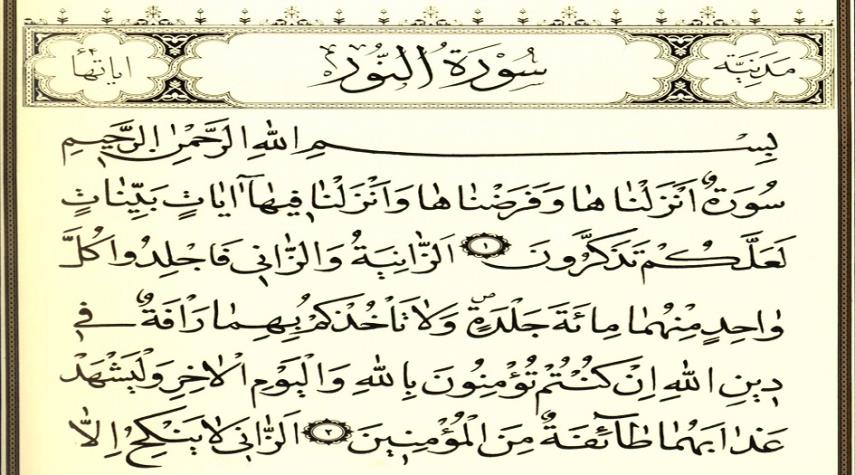 مَدَنِيَّة سُورَةُ النُّورِ اٰيَاتُهَا ٦٤
بِسْمِ اللّٰهِ الرَّحْمٰنِ الرَّحِيمِ
سُورَةٌ اَنْزَلْنَاهَا وَفَرَضْنَاهَا وَاَنْزَلْنَا فِيهَٓا اٰيَاتٍ بَيِّنَاتٍ
لَعَلَّكُمْ تَذَكَّرُونَ ١ اَلزَّانِيَةُ وَالزَّانِي فَاجْلِدُوا كُلَّ
وَاحِدٍ مِنْهُمَا مِائَةَ جَلْدَةٍ ۖ وَلَا تَأْخُذْكُمْ بِهِمَا رَأْفَةٌ فِي
دِينِ اللّٰهِ اِنْ كُنْتُمْ تُؤْمِنُونَ بِاللّٰهِ وَالْيَوْمِ الْاٰخِرِ وَلْيَشْهَدْ
عَذَابَهُمَا طَٓائِفَةٌ مِنَ الْمُؤْمِنِينَ ٢ اَلزَّانِي لَا يَنْكِحُ اِلَّا